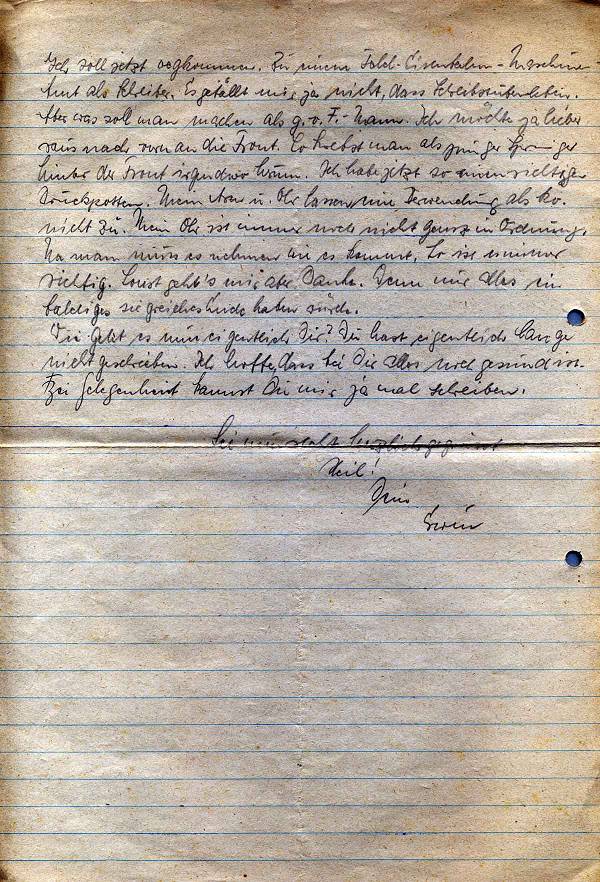 Ich soll jetzt wegkommen. Zu einem Feld-Eisenbahn-Maschinen-
Amt als Schreiber. Es gefällt mir ja nicht, dass Schreibstubenleben.
Aber was soll man machen als g.v.F.-Mann. Ich möchte ja lieber
raus nach vorn an die Front. So krebst man als junger
hinter der Front irgendwo herum. Ich habe jetzt so einen richtigen
Druckposten. Mein Arm u. Ohr lassen eine Verwendung als kv.
nicht zu. Mein Ohr ist immer noch nicht ganz in Ordnung.
Na man muss es nehmen wie es kommt. So ist es immer
richtig. Sonst geht's mir aber Danke. Denn mir alles ein
baldiges siegreiches Ende haben würde.
Wie geht es nun eigentlich Dir? Du hast eigentlich lange
nicht geschrieben. Ich hoffe, dass bei Dir alles noch gesund ist.
Bei Gelegenheit kannst Du mir ja mal schreiben.
Sei nun recht herzlich gegrüsst
Heil!
Dein
Erwin